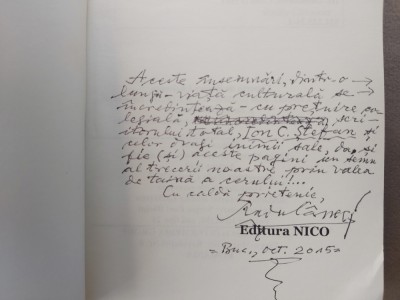 Aceste însemnări, dintr-o
lungă viață culturală se
încredințează - cu prețuire co-
legială, scri-
itorului total, Ion C. Ștefan și
celor dragi inimii sale, da, și
fie (și) aceste pagini un semn
al trecerii noastre prin valea
de taină a cerului!...
Cu caldă prietenie,
Radu Cârneci
Editura NICO
= Buc., oct. 2015 =